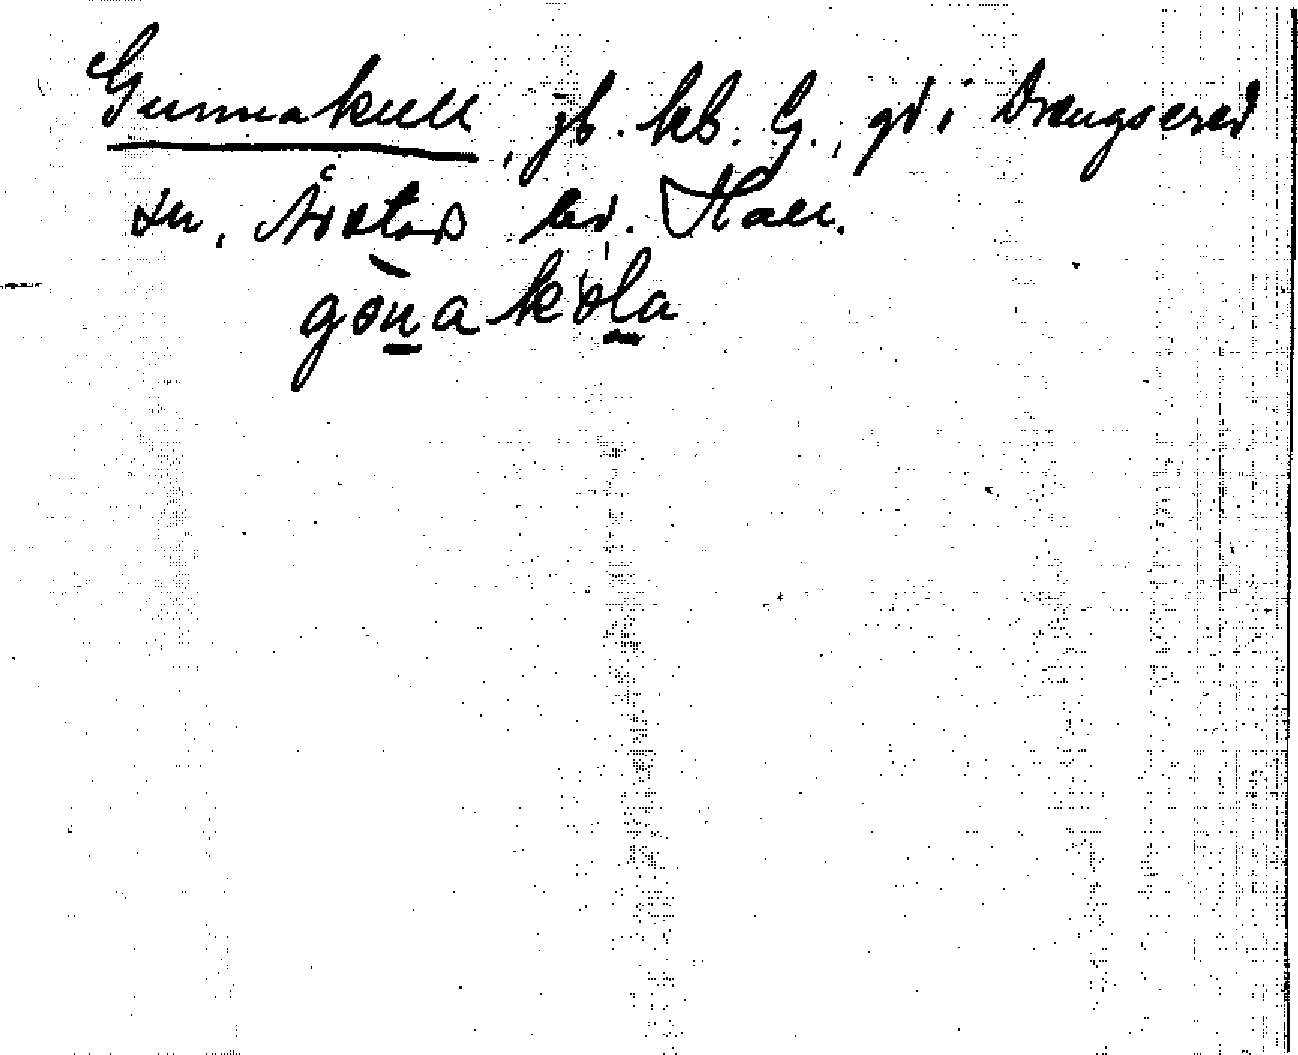 Gunnakull, jb. kb. G., gd i Drængsered
sn, Årstads hd. Hall.
gɔna kɔla